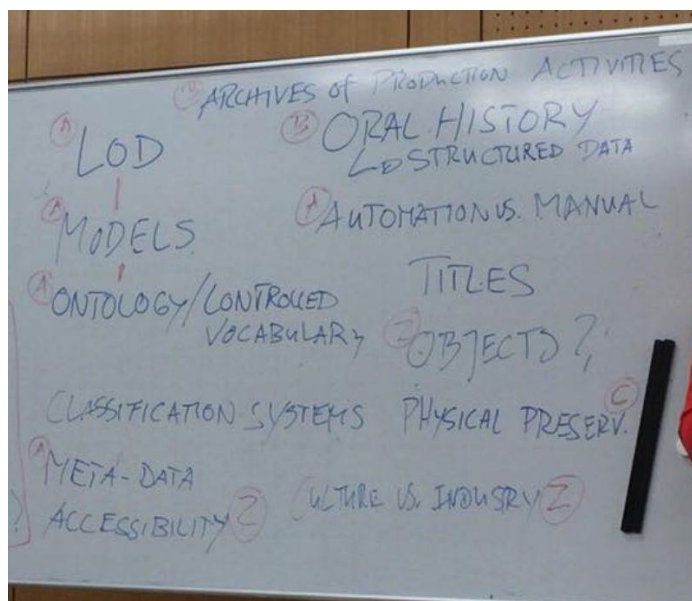 B ARCHIVES of PRODUCTION ACTIVITIES
A LOD
B ORAL HISTORY
STRUCTURED DATA
A MODELS
A AUTOMATION VS. MANUAL
A ONTOLOGY/CONTROLLED
VOCABULARY
TITLES
Z OBJECTS?
CLASSIFICATION SYSTEMS
PHYSICAL PRESERV. C
A META-DATA
ACCESSIBILITY Z
CULTURE VS. INDUSTRY Z
?